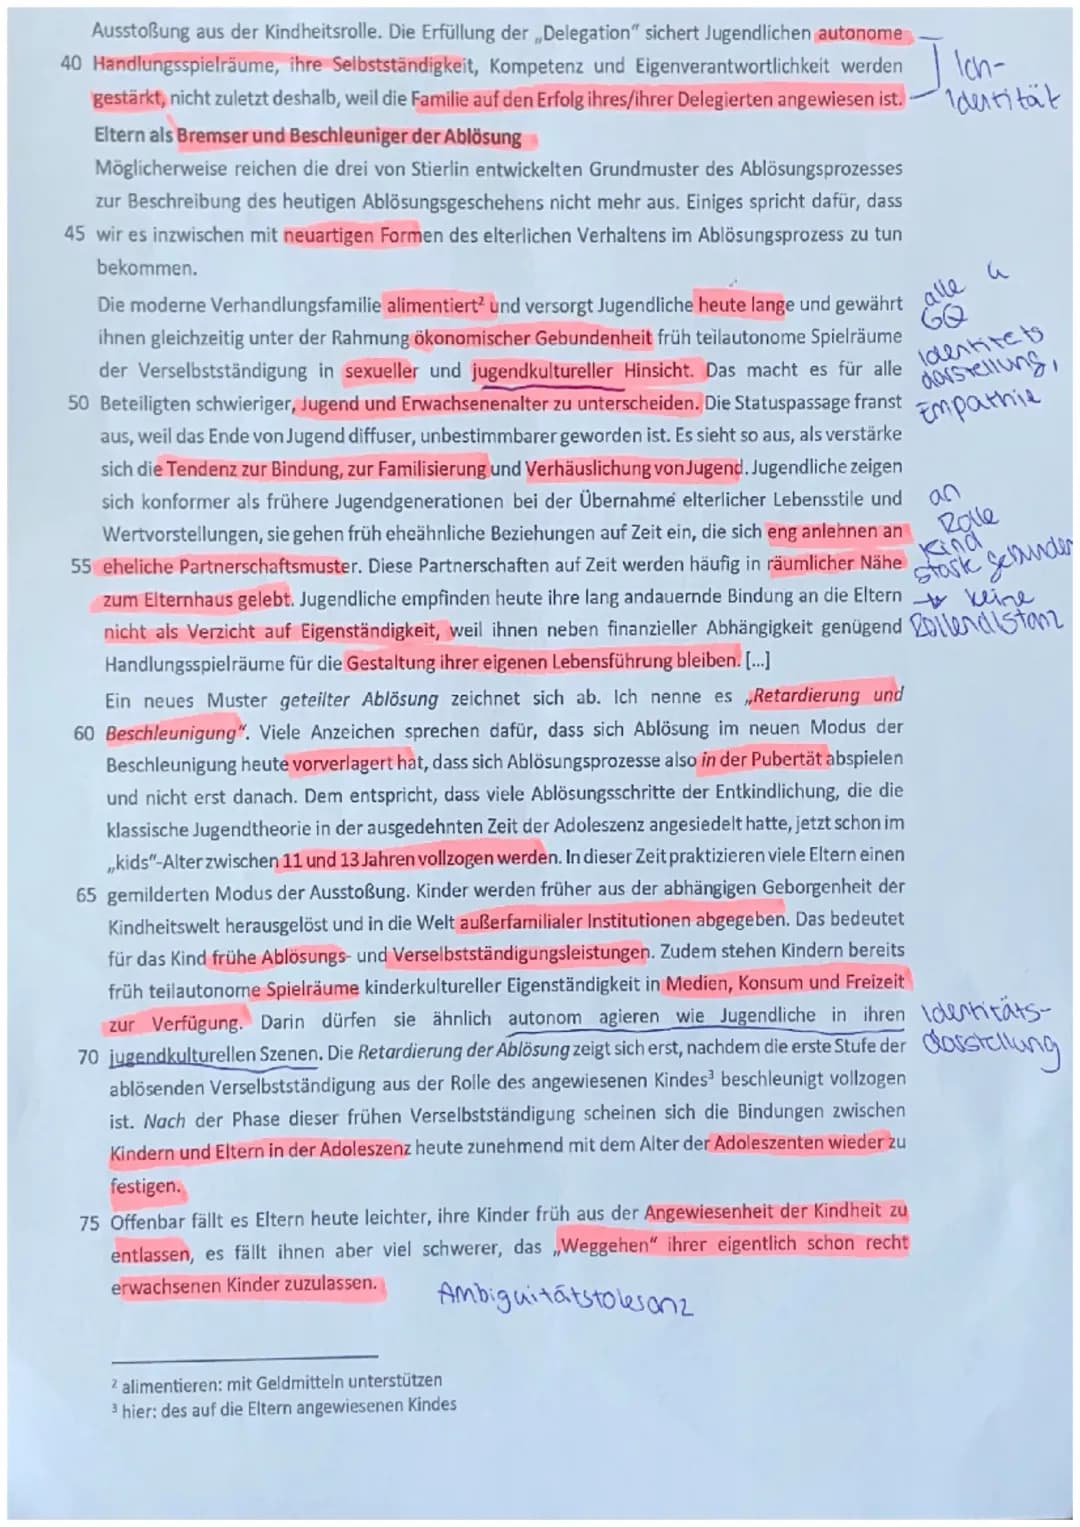 Ausstoßung aus der Kindheitsrolle. Die Erfüllung der „Delegation" sichert Jugendlichen autonome
40 Handlungsspielräume, ihre Selbstständigkeit, Kompetenz und Eigenverantwortlichkeit werden
gestärkt, nicht zuletzt deshalb, weil die Familie auf den Erfolg ihres/ihrer Delegierten angewiesen ist.
Ich-
Identität
Eltern als Bremser und Beschleuniger der Ablösung
Möglicherweise reichen die drei von Stierlin entwickelten Grundmuster des Ablösungsprozesses
zur Beschreibung des heutigen Ablösungsgeschehens nicht mehr aus. Einiges spricht dafür, dass
45 wir es inzwischen mit neuartigen Formen des elterlichen Verhaltens im Ablösungsprozess zu tun
bekommen.
Die moderne Verhandlungsfamilie alimentiert² und versorgt Jugendliche heute lange und gewährt
ihnen gleichzeitig unter der Rahmung ökonomischer Gebundenheit früh teilautonome Spielräume
der Verselbstständigung in sexueller und jugendkultureller Hinsicht. Das macht es für alle
50 Beteiligten schwieriger, Jugend und Erwachsenenalter zu unterscheiden. Die Statuspassage franst
aus, weil das Ende von Jugend diffuser, unbestimmbarer geworden ist. Es sieht so aus, als verstärke
sich die Tendenz zur Bindung, zur Familisierung und Verhäuslichung von Jugend. Jugendliche zeigen
sich konformer als frühere Jugendgenerationen bei der Übernahme elterlicher Lebensstile und
Wertvorstellungen, sie gehen früh eheähnliche Beziehungen auf Zeit ein, die sich eng anlehnen an
55 eheliche Partnerschaftsmuster. Diese Partnerschaften auf Zeit werden häufig in räumlicher Nähe
zum Elternhaus gelebt. Jugendliche empfinden heute ihre lang andauernde Bindung an die Eltern
nicht als Verzicht auf Eigenständigkeit, weil ihnen neben finanzieller Abhängigkeit genügend
Handlungsspielräume für die Gestaltung ihrer eigenen Lebensführung bleiben. [...]
alle 4
GQ
Identitets
darstellung,
Empathie
an
Rolle
Kind
stark gebunden
→ keine
Rollendistanz
Ein neues Muster geteilter Ablösung zeichnet sich ab. Ich nenne es „Retardierung und
60 Beschleunigung". Viele Anzeichen sprechen dafür, dass sich Ablösung im neuen Modus der
Beschleunigung heute vorverlagert hat, dass sich Ablösungsprozesse also in der Pubertät abspielen
und nicht erst danach. Dem entspricht, dass viele Ablösungsschritte der Entkindlichung, die die
klassische Jugendtheorie in der ausgedehnten Zeit der Adoleszenz angesiedelt hatte, jetzt schon im
„kids"-Alter zwischen 11 und 13 Jahren vollzogen werden. In dieser Zeit praktizieren viele Eltern einen
65 gemilderten Modus der Ausstoßung. Kinder werden früher aus der abhängigen Geborgenheit der
Kindheitswelt herausgelöst und in die Welt außerfamilialer Institutionen abgegeben. Das bedeutet
für das Kind frühe Ablösungs- und Verselbstständigungsleistungen. Zudem stehen Kindern bereits
früh teilautonome Spielräume kinderkultureller Eigenständigkeit in Medien, Konsum und Freizeit
zur Verfügung. Darin dürfen sie ähnlich autonom agieren wie Jugendliche in ihren
70 jugendkulturellen Szenen. Die Retardierung der Ablösung zeigt sich erst, nachdem die erste Stufe der
ablösenden Verselbstständigung aus der Rolle des angewiesenen Kindes³ beschleunigt vollzogen
ist. Nach der Phase dieser frühen Verselbstständigung scheinen sich die Bindungen zwischen
Kindern und Eltern in der Adoleszenz heute zunehmend mit dem Alter der Adoleszenten wieder zu
festigen.
Identitäts-
darstellung
75 Offenbar fällt es Eltern heute leichter, ihre Kinder früh aus der Angewiesenheit der Kindheit zu
entlassen, es fällt ihnen aber viel schwerer, das „Weggehen" ihrer eigentlich schon recht
erwachsenen Kinder zuzulassen.
Ambiguitätstoleranz
² alimentieren: mit Geldmitteln unterstützen
³ hier: des auf die Eltern angewiesenen Kindes